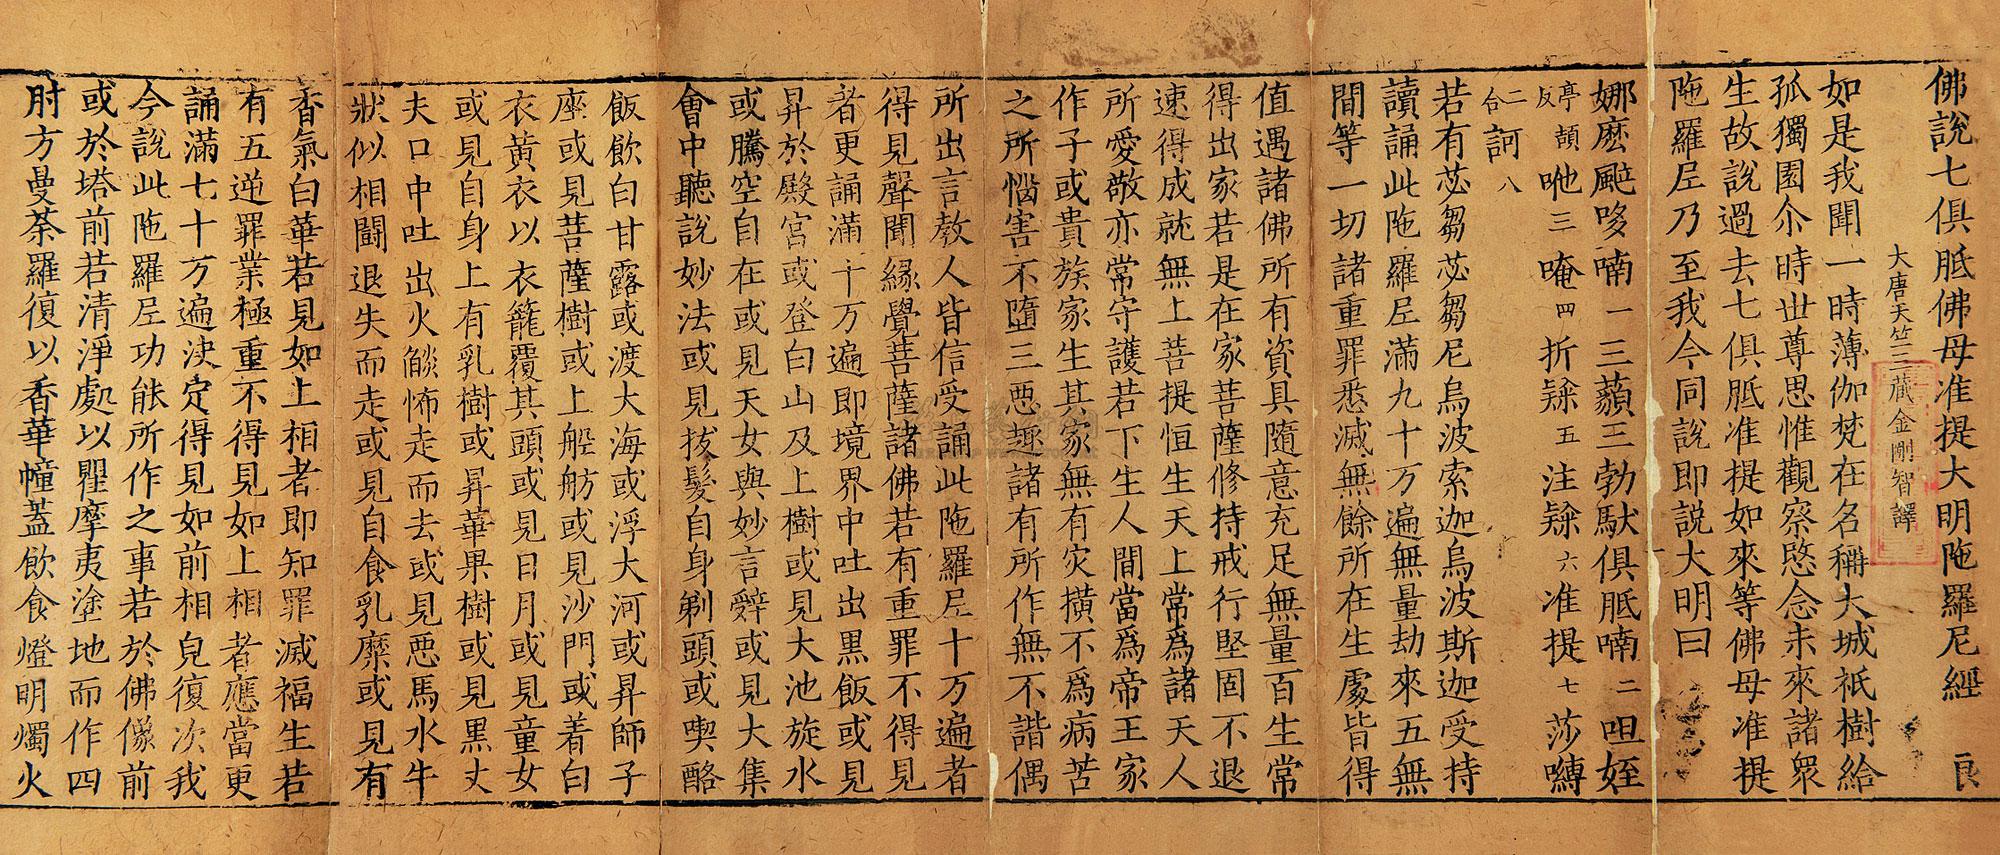 佛說七俱胝佛母准提大明陁羅尼經 良
大唐天竺三藏金剛智譯
如是我聞一時薄伽梵在名稱大城祇樹給
孤獨園尒時世尊思惟觀察愍念未來諸衆
生故說過去七俱胝准提如來等佛母准提
陁羅尼乃至我今同說即說大明曰
娜麽颭哆喃一三藐三勃䭾俱胝喃二呾姪
亭頡反咃三唵四折隸五注隸六准提七莎嚩
二合訶八
若有苾芻苾芻尼烏波索迦烏波斯迦受持
讀誦此陁羅尼滿九十万遍無量劫來五無
間等一切諸重罪悉滅無餘所在生處皆得
值遇諸佛所有資具隨意充足無量百生常
得出家若是在家菩薩修持戒行堅固不退
速得成就無上菩提恒生天上常爲諸天人
所愛敬亦常守護若下生人間當爲帝王家
作子或貴族家生其家無有灾橫不爲病苦
之所惱害不墮三惡趣諸有所作無不諧偶
所出言教人皆信受誦此陁羅尼十万遍者
得見聲聞緣覺菩薩諸佛若有重罪不得見
者更誦滿十万遍即境界中吐出黑飯或見
昇於殿宮或登白山及上樹或見大池旋水
或騰空自在或見天女與妙言辭或見大集
會中聽說妙法或見拔髮自身剃頭或喫酪
飯飲白甘露或渡大海或浮大河或昇師子
座或見菩薩樹或上船舫或見沙門或著白
衣黃衣以衣籠覆其頭或見日月或見童女
或見自身上有乳樹或昇華果樹或見黑丈
夫口中吐出火𦦨怖走而去或見惡馬水牛
狀似相鬪退失而走或見自食乳糜或見有
香氣白華若見如上相者即知罪滅福生若
有五逆罪業極重不得見如上相者應當更
誦滿七十万遍決定得見如前相皃復次我
今說此陁羅尼功能所作之事若於佛像前
或於塔前若清淨處以瞿摩夷塗地而作四
肘方曼荼羅復以香華幢蓋飲食燈明燭火